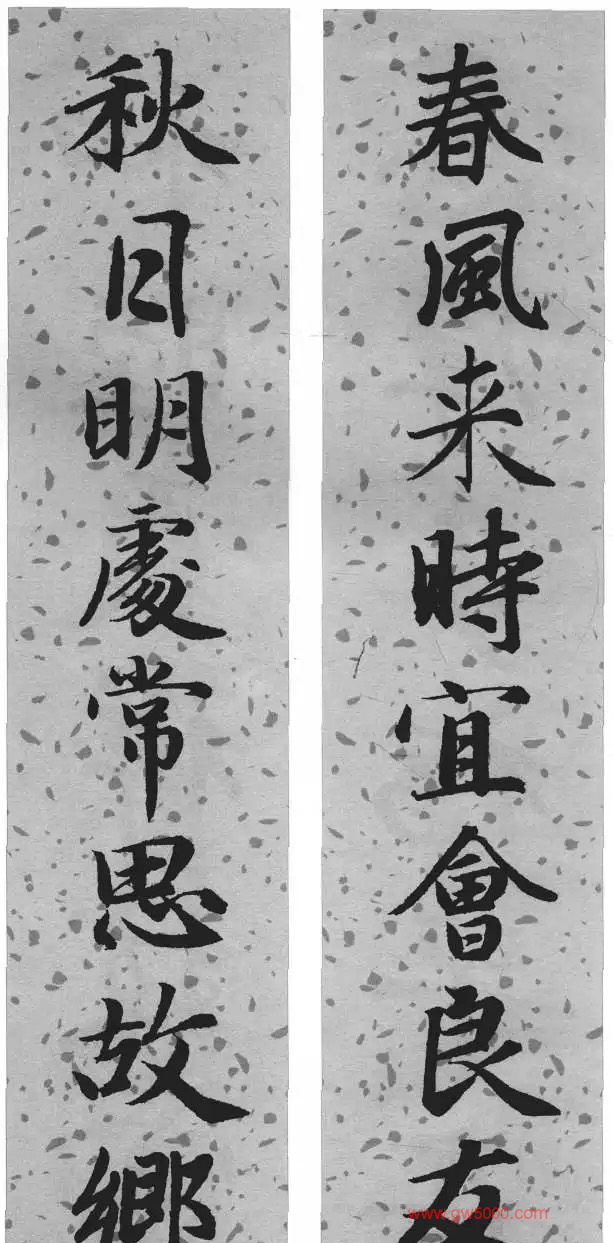 春風来時宜會良友
秋日明處常思故鄉
www.gw5000.com